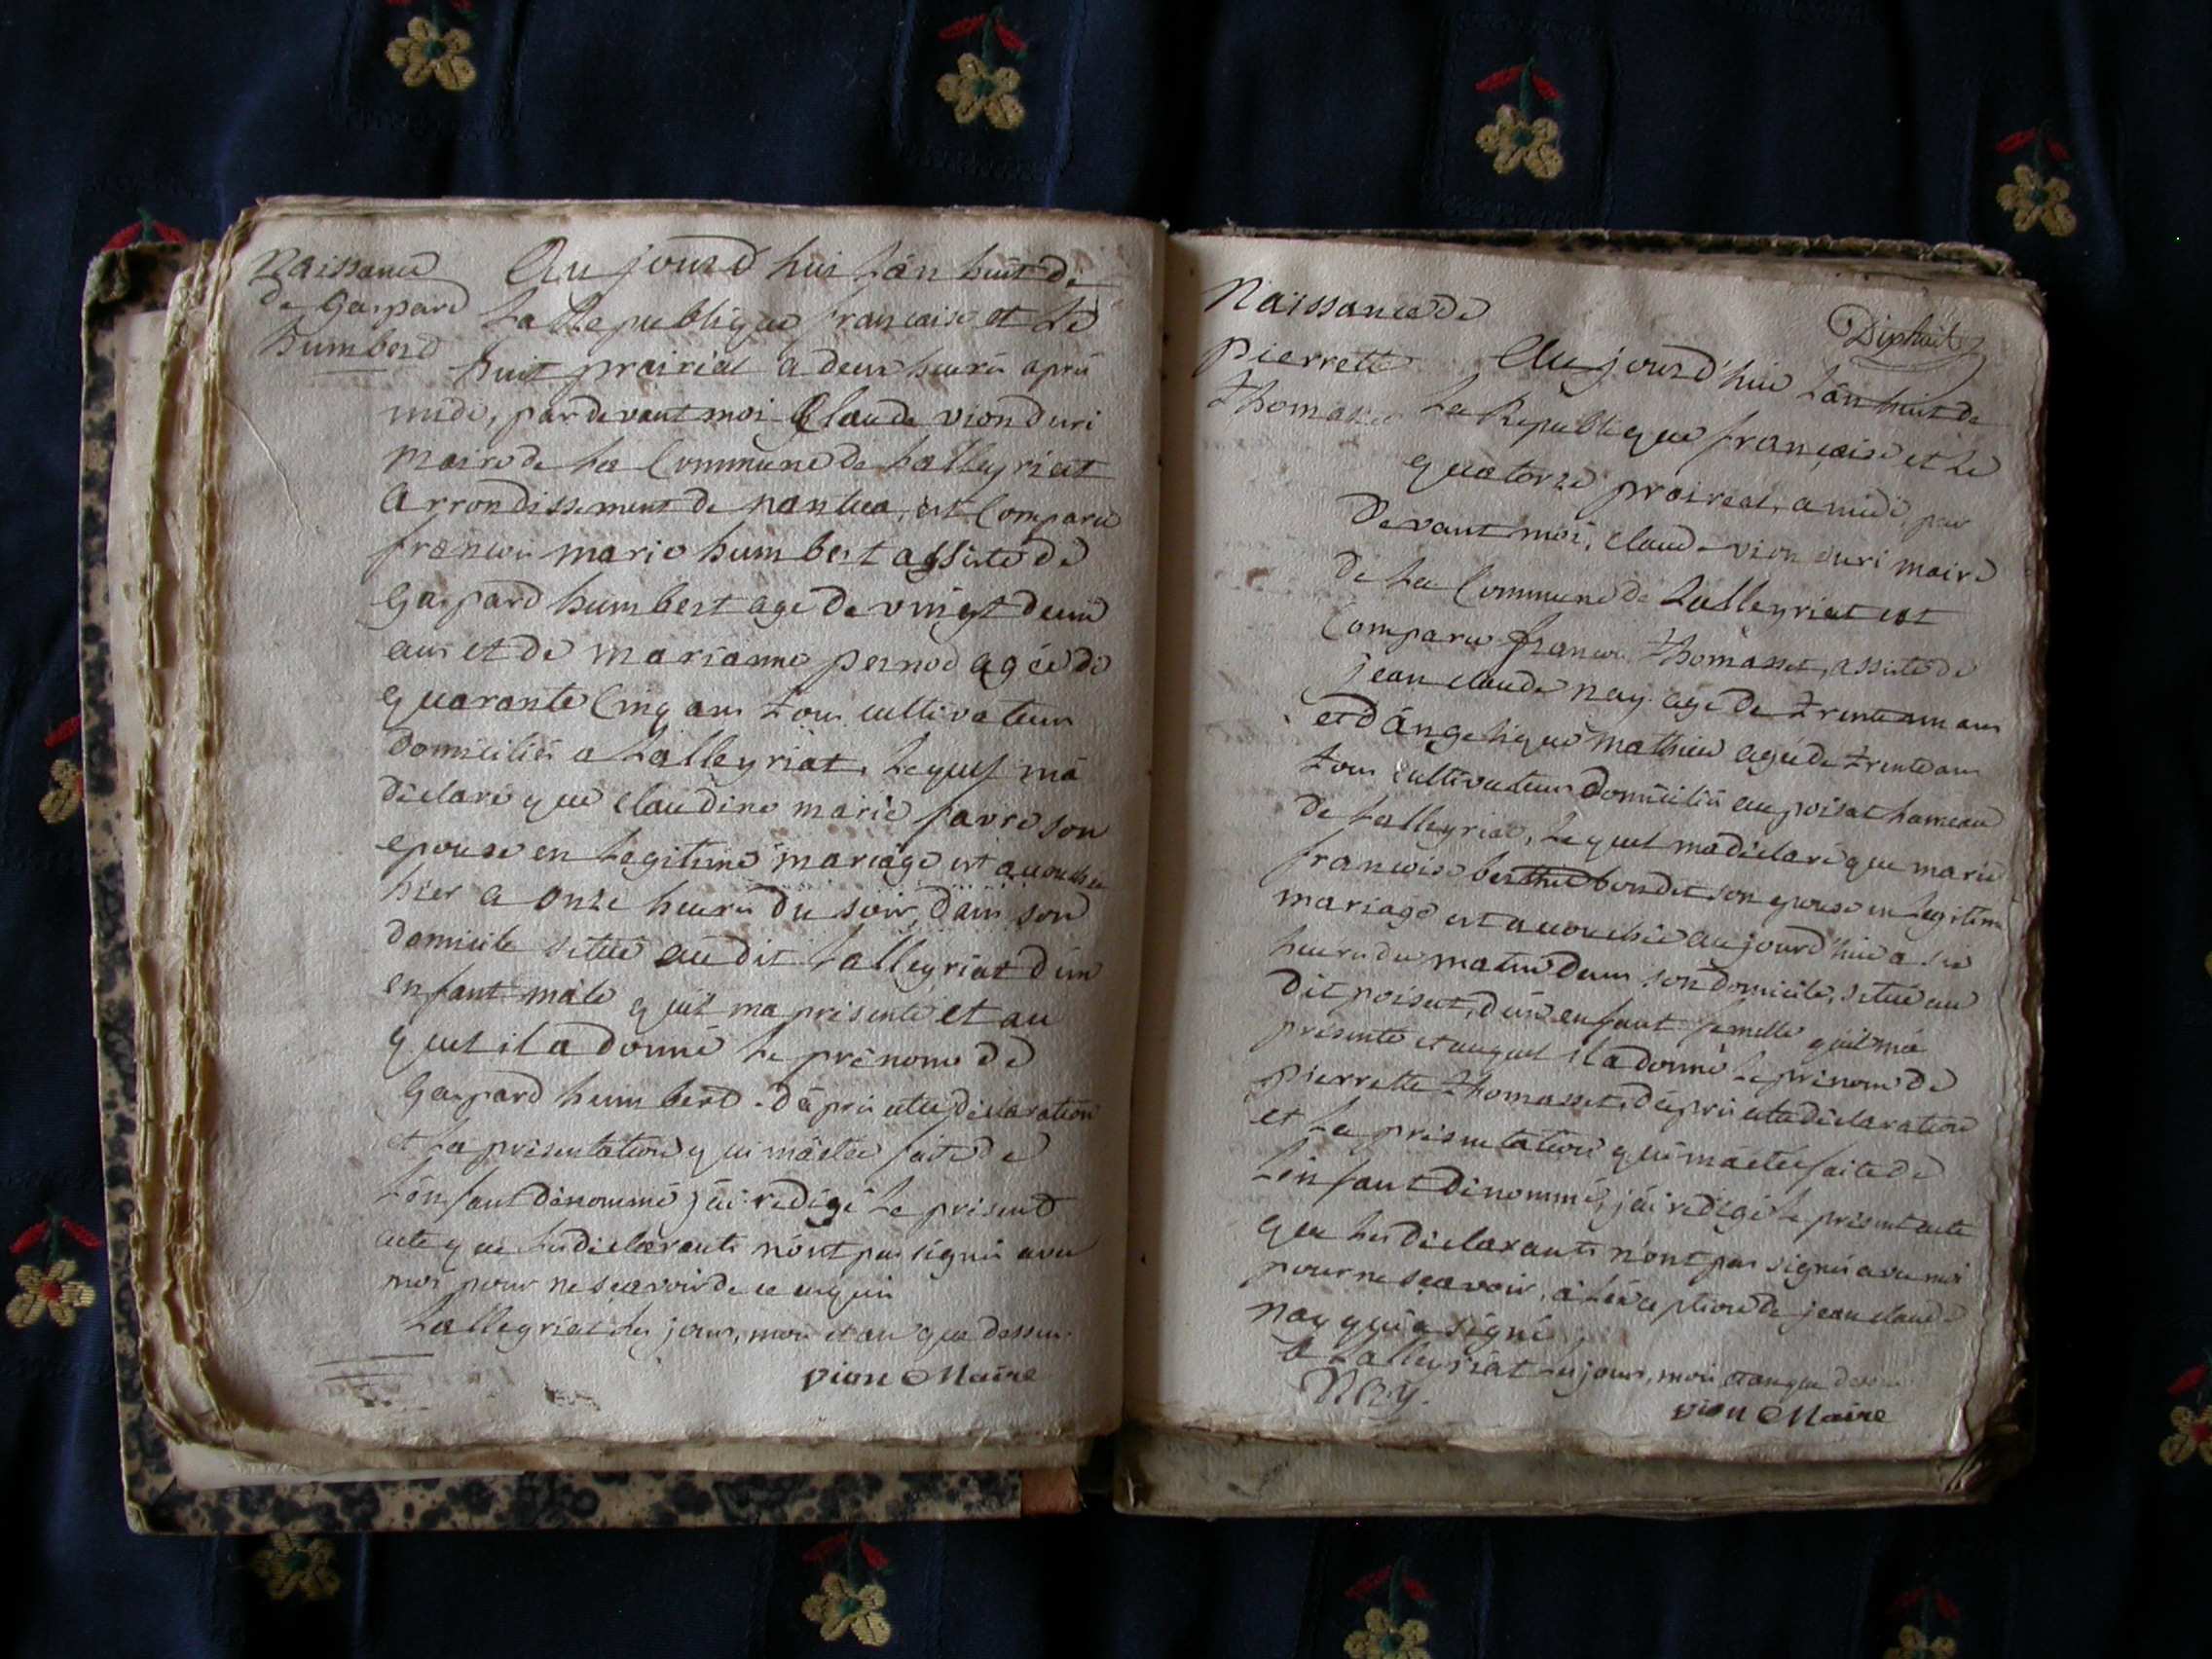 Naissance
de Gaspard
humberd
Aujourd hui Lán huit de
La Republique francaise et Le
huit prairial a deux heures aprés
midi, par devant moi Claude vion duri
Maire de La Commune de Lalleyriat
Arrondissement de nantua, est Comparu
francois marie humbert assisté de
Gaspard humbert age de vingt deux
ans et de marianne pernod agée de
quarante Cinq ans tous cultivateurs
domiciliés a Lalleyriat, Lequel má
déclaré que claudine marie favre son
epouse en Legitime mariage est accouchée
hier a onze heures du soir, dans son
domicile situé audit Lalleyriat dún
enfant mâle quil ma presenté et au
quel il a donné Le prénom de
Gaspard humberd. dáprés cette declaration
et La presentation qui má étée faite de
Lénfant dénommé jái redigé Le present
acte que Les déclarants nónt pas signés avec
moi pour ne scavoir de ce enquis
Lalleyriat Les jour, mois et an que dessus.
vion Maire
Naissance de
pierrette
thomasset
Diphuit
Aujourd'hui Lán huit de
La Republique française et Le
quatorze prairéal, a midi, par
devant moi, claude vion duri maire
de La Commune de Lalleyriat est
Comparu francois thomasset, assisté de
jean claude nay agé de trente un ans
et dÁngelique mathieu agée de trente ans
tous cultivateurs domiciliés au poisat hameau
de Lalleyriat, Lequel má déclaré que marie
francoise bondet son epouse en Legitime
mariage est accouchée aujourd'hui a six
heures du matin dans son domicile, situé au
dit poisat, dún enfant femelle quil má
presenté et auquel il a donné Le prénom de
pierrette thomasset, dáprés cette déclaration
et La presentation qui má étée faite de
Lénfant dénommé, jái redigé Le present acte
que Les déclarants nónt pas signés avec moi
pour ne scavoir, a Léxception de jean claude
nay qui a signé
a Lalleyriat Les jour, mois et an que dessus
Nay.
vion Maire